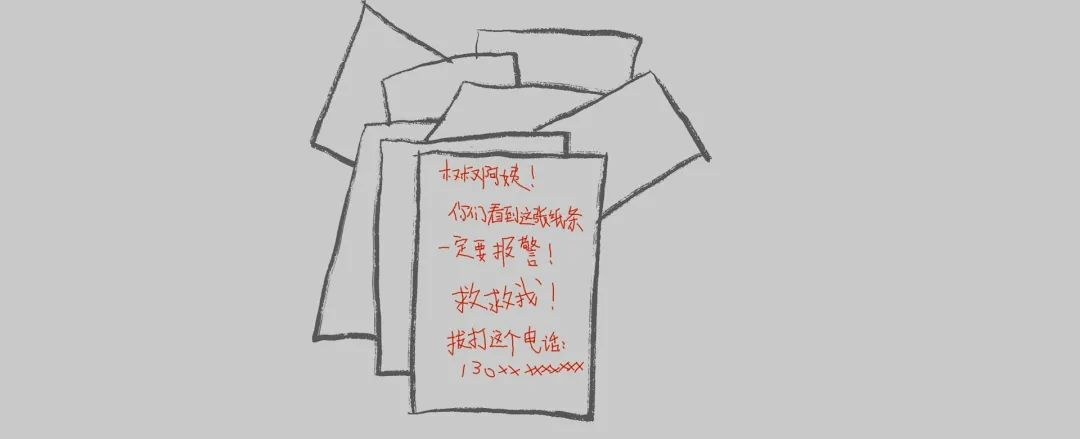 叔叔阿姨!
你们看到这张纸条
一定要报警!
救救我!
拔打这个电话:
130xx xxxxxxx